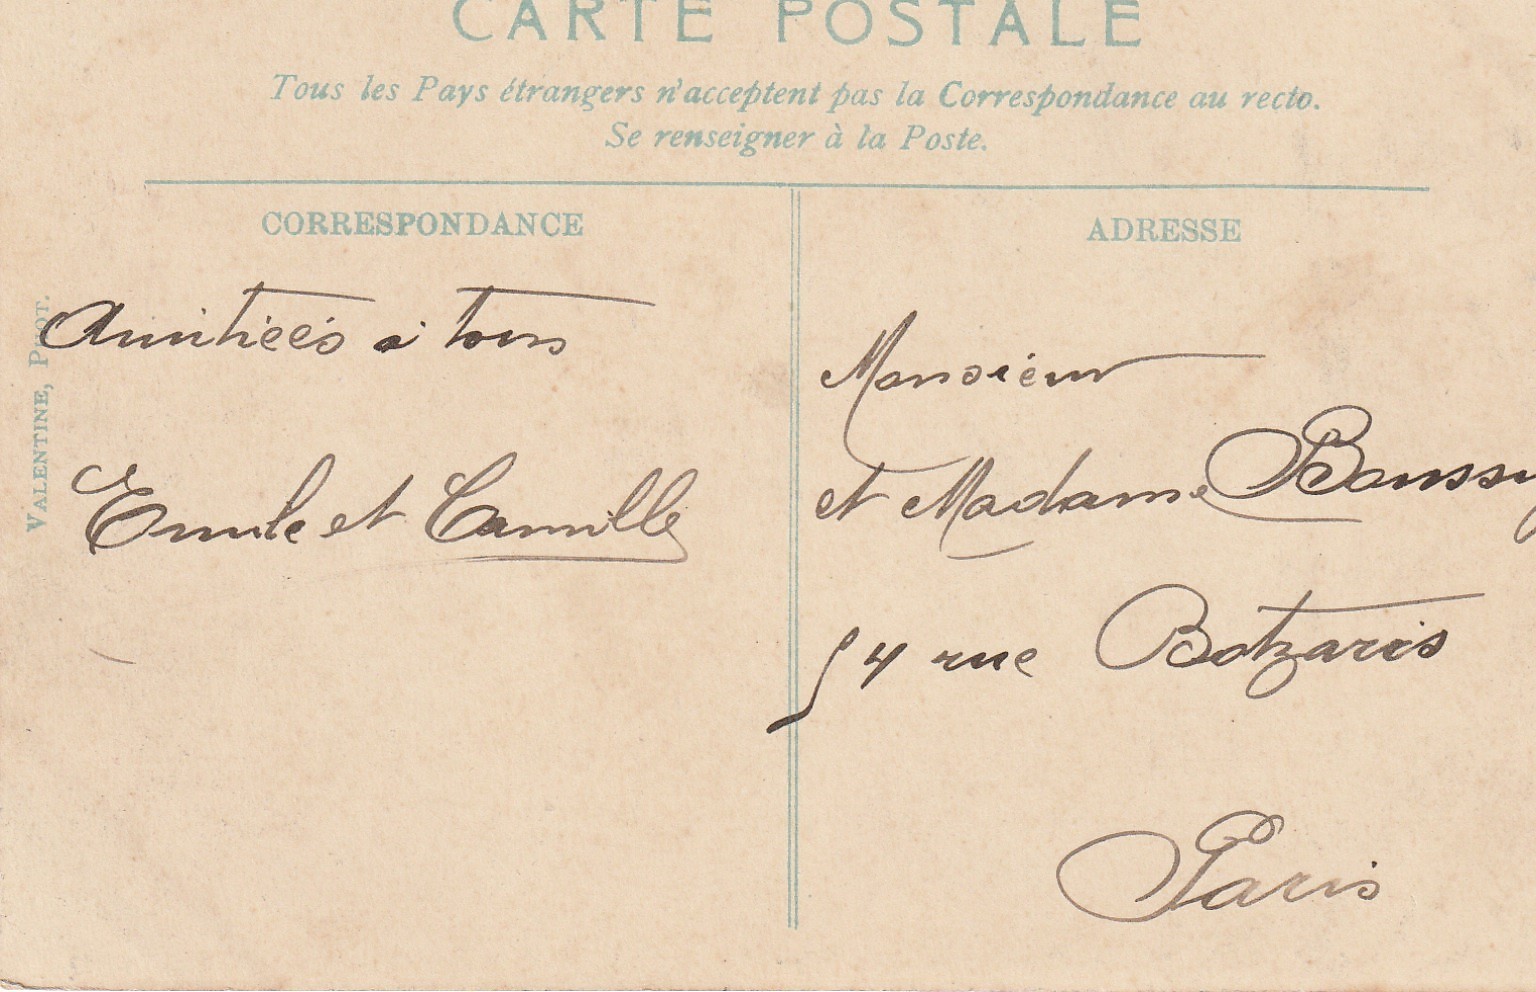 CARTE POSTALE
Tous les Pays étrangers n'acceptent pas la Correspondance au recto.
Se renseigner à la Poste.
CORRESPONDANCE
Amitiées à tous
Emile et Camille
VALENTINE, PHOT.
ADRESSE
Monsieur
et Madame Boussy
54 rue Botzaris
Paris